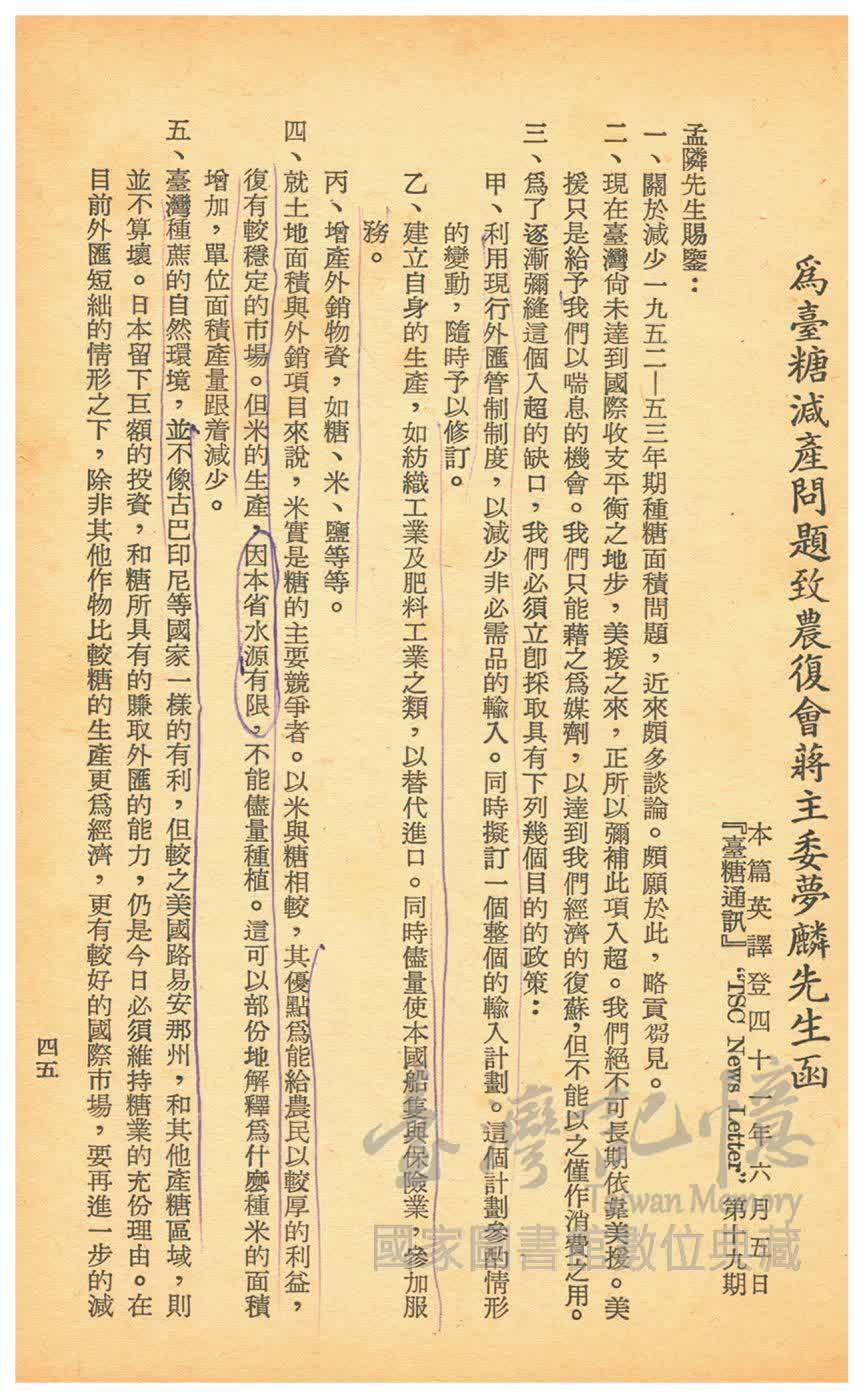 為臺糖減產問題致農復會蔣主委夢麟先生函
本篇英譯登四十一年六月五日
『臺糖通訊』“TSC News Letter”第十九期
孟隣先生賜鑒：
一、關於減少一九五二—五三年期種糖面積問題，近來頗多談論。頗願於此，略貢芻見。
二、現在臺灣尙未達到國際收支平衡之地步，美援之來，正所以彌補此項入超。我們絕不可長期依靠美援。美
援只是給予我們以喘息的機會。我們只能藉之爲媒劑，以達到我們經濟的復蘇，但不能以之僅作消費之用。
三、爲了逐漸彌縫這個入超的缺口，我們必須立卽採取具有下列幾個目的的政策：
甲、利用現行外匯管制制度，以減少非必需品的輸入。同時擬訂一個整個的輸入計劃。這個計劃參酌情形
的變動，隨時予以修訂。
乙、建立自身的生產，如紡織工業及肥料工業之類，以替代進口。同時儘量使本國船隻與保險業，參加服
務。
丙、增產外銷物資，如糖、米、鹽等等。
四、就土地面積與外銷項目來說，米實是糖的主要競爭者。以米與糖相較，其優點爲能給農民以較厚的利益，
復有較穩定的市場。但米的生產，因本省水源有限，不能儘量種植。這可以部份地解釋爲什麼種米的面積
增加，單位面積產量跟着減少。
五、臺灣種蔗的自然環境，並不像古巴印尼等國家一樣的有利，但較之美國路易安那州，和其他產糖區域，則
並不算壞。日本留下巨額的投資，和糖所具有的賺取外匯的能力，仍是今日必須維持糖業的充份理由。在
目前外匯短絀的情形之下，除非其他作物比較糖的生產更爲經濟，更有較好的國際市場，要再進一步的減
四五
台灣記憶
Taiwan Memory
國家圖書館數位典藏